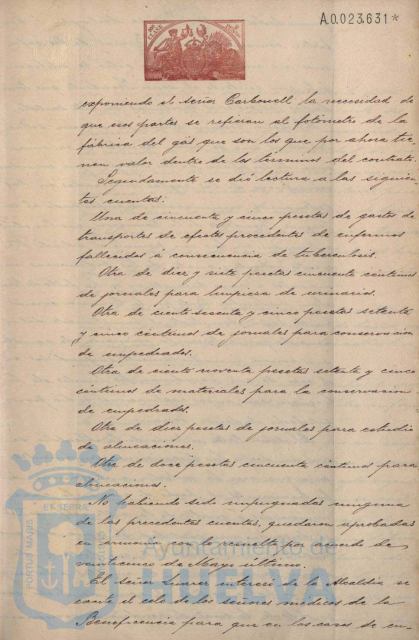 A.0.023.631*
exponiendo el señor Carbonell la necesidad de
que esos partes se refieran al fotómetro de la
fábrica del gas que son los que por ahora tie-
nen valor dentro de los términos del contrato.
Segundamente se dió lectura a las siguien-
tes cuentas.
Una de cincuenta y cinco pesetas de gastos de
transportes de efectos procedentes de enfermos
fallecidos á consecuencia de tuberculosis.
Otra de diez y siete pesetas cincuenta céntimos
de jornales para limpieza de urinarios.
Otra de ciento sesenta y cinco pesetas setenta
y cinco céntimos de jornales para conservación
de empedrados.
Otra de ciento noventa pesetas setenta y cinco
céntimos de materiales para la conservación
de empedrados.
Otra de diez pesetas de jornales para estudio
de alineaciones.
Otra de doce pesetas cincuenta céntimos para
alineaciones.
No habiendo sido impugnadas ninguna
de las precedentes cuentas, quedaron aprobadas
en armonía con lo resuelto por acuerdo de
veinticinco de Mayo último.
El señor Suarez interesó de la Alcaldía se
excite el celo de los señores médicos de la
Beneficencia para que en los casos de en-
PORTUS MARIS
ET TERRÆ
Ayuntamiento de
HUELVA